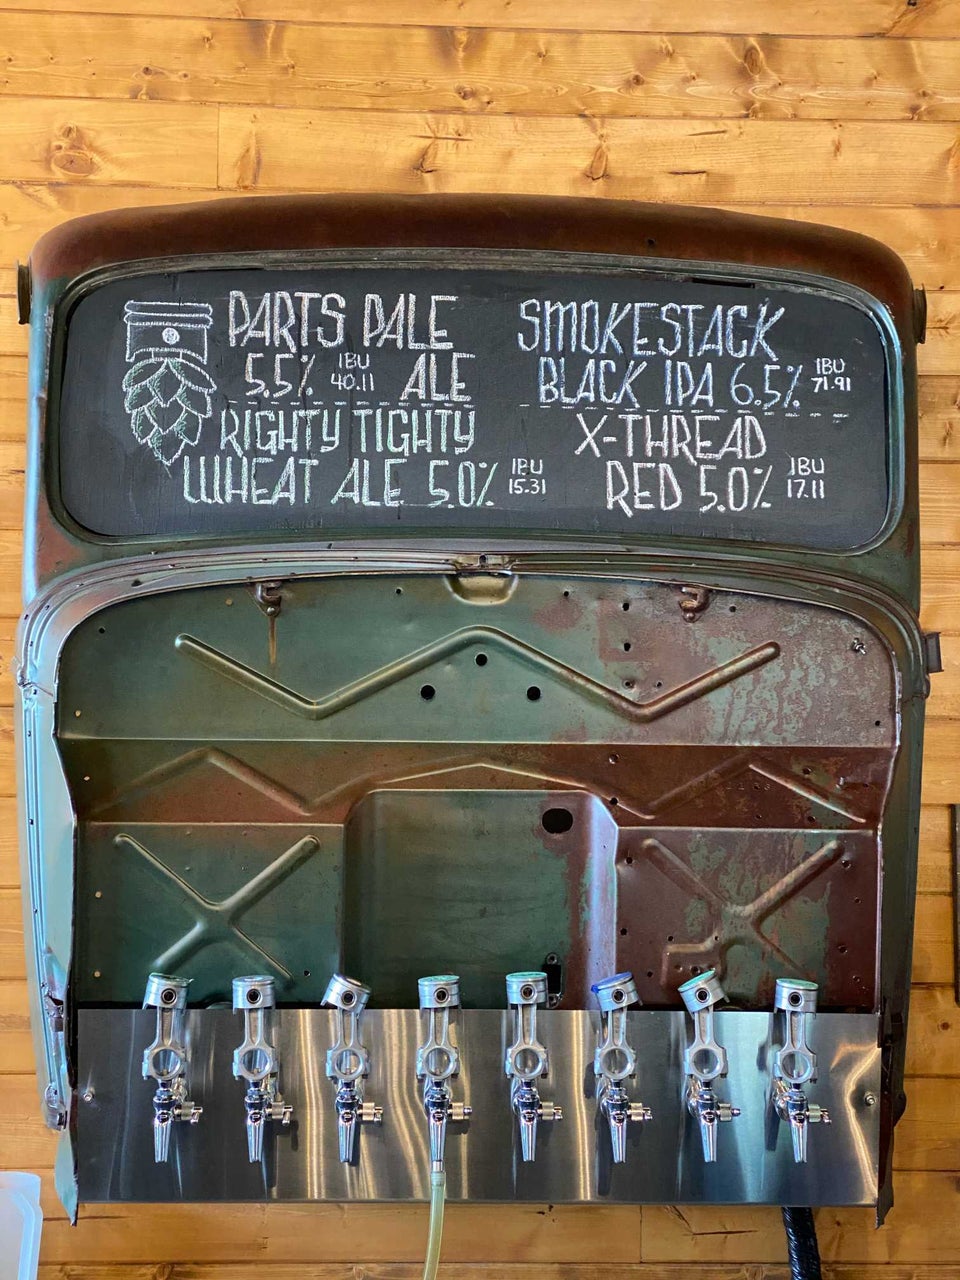 PARTS PALE
5.5% IBU 40.11 ALE
RIGHTY TIGHTY
WHEAT ALE 5.0% IBU 15.31
SMOKESTACK
BLACK IPA 6.5% IBU 71.91
X-THREAD
RED 5.0% IBU 17.11